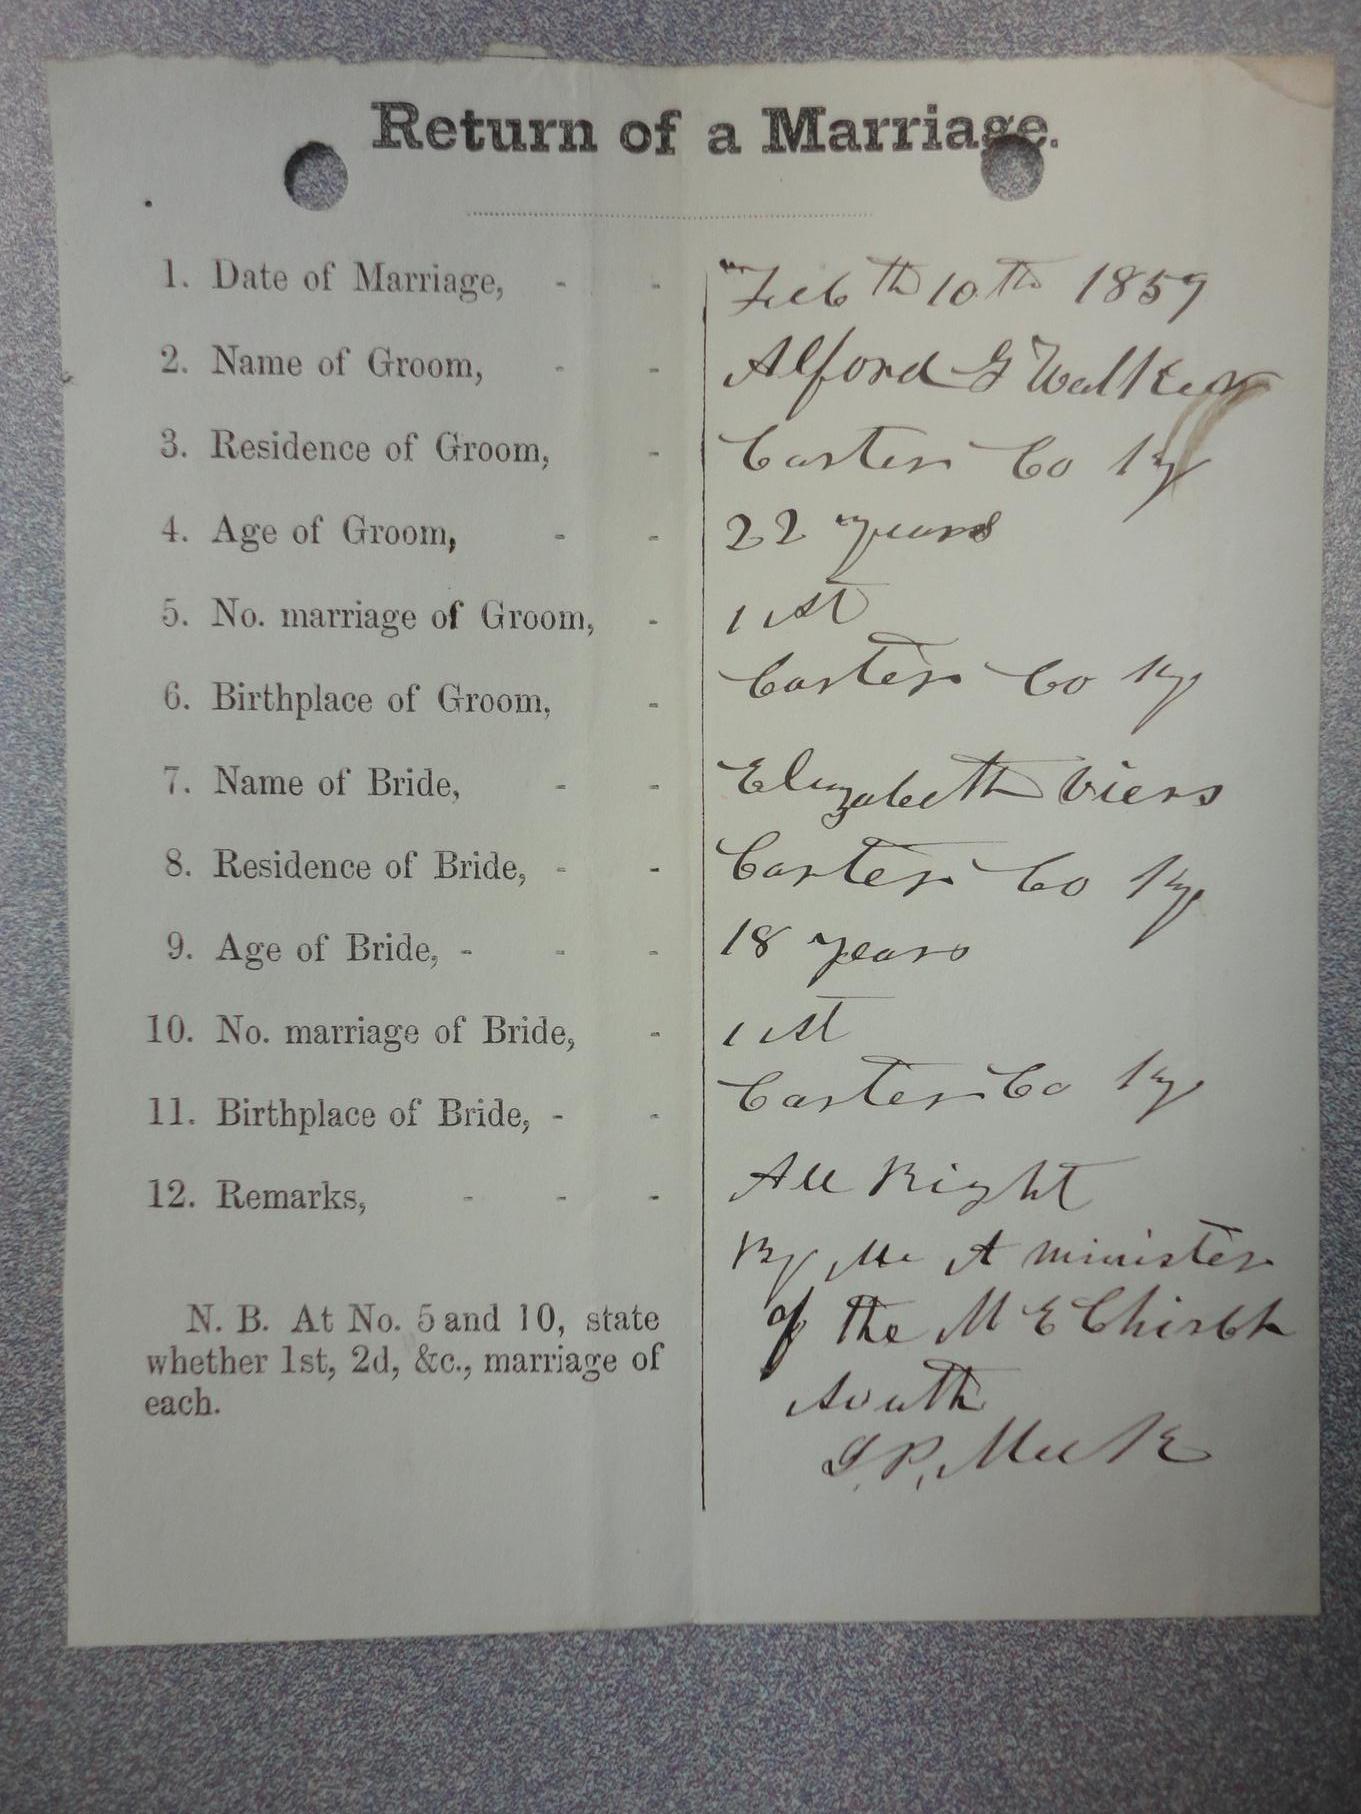 Return of a Marriage.
1. Date of Marriage, - - Feb th 10th 1859
2. Name of Groom, - - Alford G Walker
3. Residence of Groom, - Carter Co Ky
4. Age of Groom, - - 22 years
5. No. marriage of Groom, - 1 st
6. Birthplace of Groom, - Carter Co Ky
7. Name of Bride, - - Elizabeth Viers
8. Residence of Bride, - - Carter Co Ky
9. Age of Bride, - - - 18 years
10. No. marriage of Bride, - 1 st
11. Birthplace of Bride, - - Carter Co Ky
12. Remarks, - - - All Right
By Me A minister
of the M E Chirch
south
P. Meek
N. B. At No. 5 and 10, state
whether 1st, 2d, &c., marriage of
each.